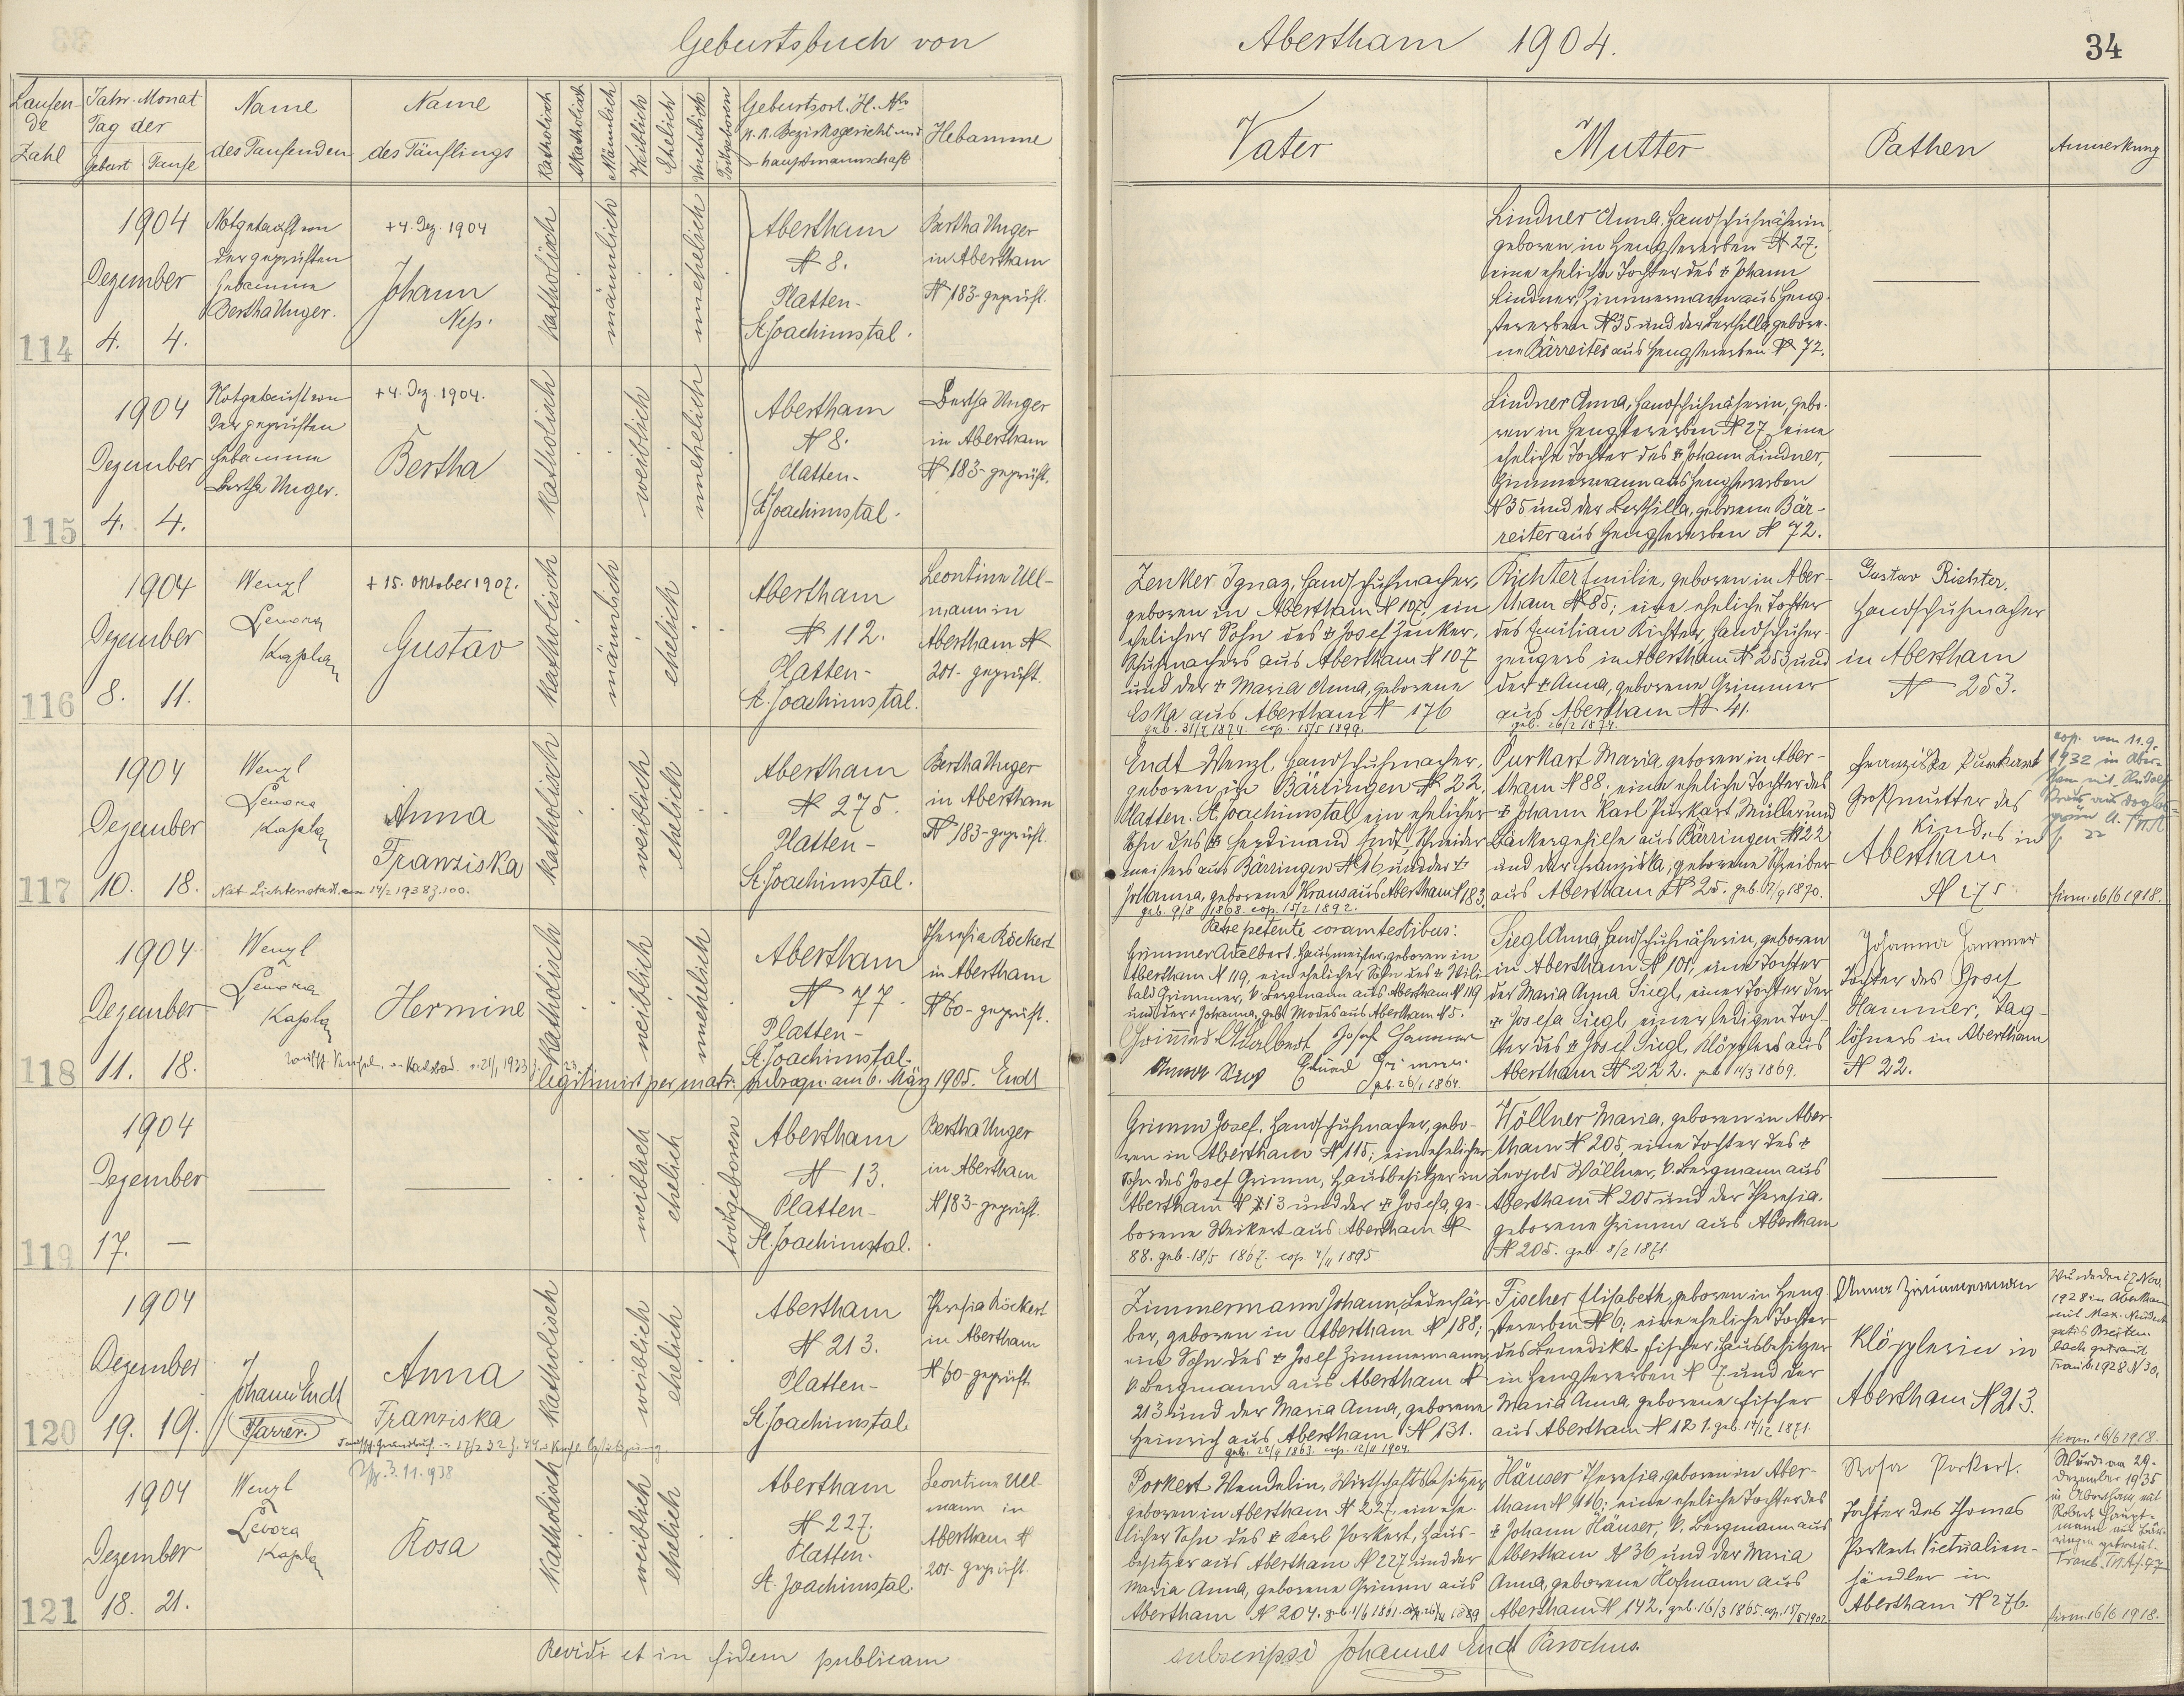 Geburtsbuch von
Abertham 1904.
34
Laufen-
de
Zahl
Jahr Monat
Tag der
Geburt Taufe
Name
des Taufenden
Name
des Täuflings
Katholisch
Akatholisch
Männlich
Weiblich
Ehelich
Unehelich
Todtgeboren
Geburtsort, H. No
k. k. Bezirksgericht und
-hauptmannschaft
Hebamme
Vater
Mutter
Pathen
Anmerkung
114
1904
Dezember
4. 4.
Notgetauft von
der geprüften
Hebamme
Bertha Unger.
+ 4. Dez. 1904
Johann
Nep.
katholisch
männlich
unehelich
Abertham
N 8.
Platten-
St. Joachimstal.
Bertha Unger
in Abertham
N 183 - geprüft.
Lindner Anna, Handschuhnäherin
geboren in Hengstererben N 27.
eine eheliche Tochter des + Johann
Lindner, Zimmermann aus Heng-
stererben N 35 und der Berthilla gebore-
ne Bärreiter aus Hengstererben N 72.
115
1904
Dezember
4. 4.
Notgetauft von
der geprüften
Hebamme
Bertha Unger.
+ 4. Dez. 1904.
Bertha
katholisch
weiblich
unehelich
Abertham
N 8.
Platten-
St. Joachimstal.
Bertha Unger
in Abertham
N 183 - geprüft.
Lindner Anna, Handschuhnäherin, gebo-
ren in Hengstererben N 27, eine
eheliche Tochter des + Johann Lindner,
Zimmermann aus Hengstererben
N 35 und der Berthilla, geborene Bär-
reiter aus Hengstererben N 72.
116
1904
Dezember
8. 11.
Wenzl
Levora
Kaplan
+ 15. Oktober 1907.
Gustav
katholisch
männlich
ehelich
Abertham
N 112.
Platten-
St. Joachimstal.
Leontine Ull-
mann in
Abertham N
201 - geprüft.
Zenker Ignaz, Handschuhmacher,
geboren in Abertham N 107; ein
ehelicher Sohn des + Josef Zenker,
Schuhmachers aus Abertham N 107
und der + Maria Anna, geborene
Eska aus Abertham N 176
geb. 31/7 1874. cop. 15/5 1899.
Richter Emilie, geboren in Aber-
tham N 85; eine eheliche Tochter
des Emilian Richter, Handschuher-
zeugers in Abertham N 253, und
der + Anna, geborene Grimmer
aus Abertham N 41.
geb. 26/2 1874.
Gustav Richter,
Handschuhmacher
in Abertham
N 253.
117
1904
Dezember
10. 18.
Wenzl
Levora
Kaplan
Anna
Franziska
Nat. Lichtenstadt am 14/2 1938 Z. 100.
katholisch
weiblich
ehelich
Abertham
N 275.
Platten-
St. Joachimstal.
Bertha Unger
in Abertham
N 183 - geprüft.
Endt Wenzl, Handschuhmacher,
geboren in Bärringen N 22,
Platten - St. Joachimstal, ein ehelicher
Sohn des + Ferdinand Endt, Schneider-
meisters aus Bärringen N 16 und der +
Johanna, geborene Kraus aus Abertham N 183.
geb. 9/8 1868. cop. 15/2 1892.
Purkart Maria, geboren in Aber-
tham N 88. eine eheliche Tochter des
+ Johann Karl Purkart, Müller und
Bäckergehilfe aus Bärringen N 22
und der Franziska, geborene Schreiber
aus Abertham N 25. geb. 12/9 1870.
Franziska Purkart
Großmutter des
Kindes in
Abertham
N 275
cop. vom 11.9.
1932 in Aber-
tham mit Rudolf
firm. 16/6 1918.
118
1904
Dezember
11. 18.
Wenzl
Levora
Kaplan
Hermine
katholisch
weiblich
unehelich
Abertham
N 77.
Platten-
St. Joachimstal.
legitimirt per matr. subsequ. am 6. März 1905. Endt
Theresia Röckert
in Abertham
N 60 - geprüft.
Patre petente coram testibus:
Grimmer Adalbert, Hausmeister, geboren in
Abertham N 119, ein ehelicher Sohn des + Wili-
bald Grimmer, k. Bergmann aus Abertham N 119
und der + Johanna, geb. Modes aus Abertham N 5.
Grimmer Adalbert Josef Hammer
geb. 26/1 1864.
Siegl Anna, Handschuhnäherin, geboren
in Abertham N 101, eine Tochter
der Maria Anna Siegl, einer Tochter der
+ Josefa Siegl einer ledigen Toch-
ter des + Josef Siegl, Klöpplers aus
Abertham N 222. geb. 11/3 1869.
Johanna Hammer
Tochter des Josef
Hammer, Tag-
löhners in Abertham
N 22.
119
1904
Dezember
17. —
weiblich
ehelich
todtgeboren
Abertham
N 13.
Platten-
St. Joachimstal.
Bertha Unger
in Abertham
N 183 - geprüft.
Grimm Josef, Handschuhmacher, gebo-
ren in Abertham N 115; ein ehelicher
Sohn des Josef Grimm, Hausbesitzer in
Abertham N 113 und der + Josefa, ge-
borene Weikert aus Abertham N
88. geb. 18/5 1867. cop. 4/11 1895
Wöllner Maria, geboren in Aber-
tham N 205, eine Tochter des +
Leopold Wöllner, k. Bergmann aus
Abertham N 205 und der Theresia,
geborene Grimm aus Abertham
N 205. geb. 8/2 1871.
120
1904
Dezember
19. 19.
Johann Endt
Pfarrer.
Anna
Franziska
katholisch
weiblich
ehelich
Abertham
N 213.
Platten-
St. Joachimstal.
Theresia Röckert
in Abertham
N 60 - geprüft.
Zimmermann Johann, Lederfär-
ber, geboren in Abertham N 188;
ein Sohn des + Josef Zimmermann,
k. Bergmann aus Abertham N
213 und der Maria Anna, geborene
Heinrich aus Abertham N 131.
geb. 22/9 1863. cop. 12/11 1904.
Fischer Elisabeth, geboren in Heng-
stererben N 6, eine eheliche Tochter
des Benedikt Fischer, Hausbesitzer
in Hengstererben N 7 und der
Maria Anna, geborene Fischer
aus Abertham N 121. geb. 14/12 1871.
Anna Zimmermann
Klöpplerin in
Abertham N 213.
Wurde den 17. Nov.
1928 in Abertham
mit Max
getraut
Traub. 1928 N 30.
firm. 16/6 1918.
121
1904
Dezember
18. 21.
Wenzl
Levora
Kaplan
3.11.938
Rosa
katholisch
weiblich
ehelich
Abertham
N 227.
Platten-
St. Joachimstal.
Leontine Ull-
mann in
Abertham N
201 - geprüft.
Porkert Wendelin, Wirtschaftsbesitzer
geboren in Abertham N 227, ein ehe-
licher Sohn des + Karl Porkert, Haus-
besitzer aus Abertham N 227 und der
Maria Anna, geborene Grimm aus
Abertham N 204. geb. 1/6 1861.
Häuser Theresia, geboren in Aber-
tham N 116; eine eheliche Tochter des
+ Johann Häuser, k. Bergmann aus
Abertham N 36 und der Maria
Anna, geborene Hofmann aus
Abertham N 142. geb. 16/3 1865. cop. 15/5 1902
Rosa Porkert.
Tochter des Thomas
Porkert Victualien-
händler in
Abertham N 276.
Wurde am 29.
Dezember 1935
in Abertham mit
Robert Haupt-
mann aus Bär-
ringen getraut.
firm. 16/6 1918.
Revidi et in fidem publicam
subscripsi Johannes Endt Parochus.